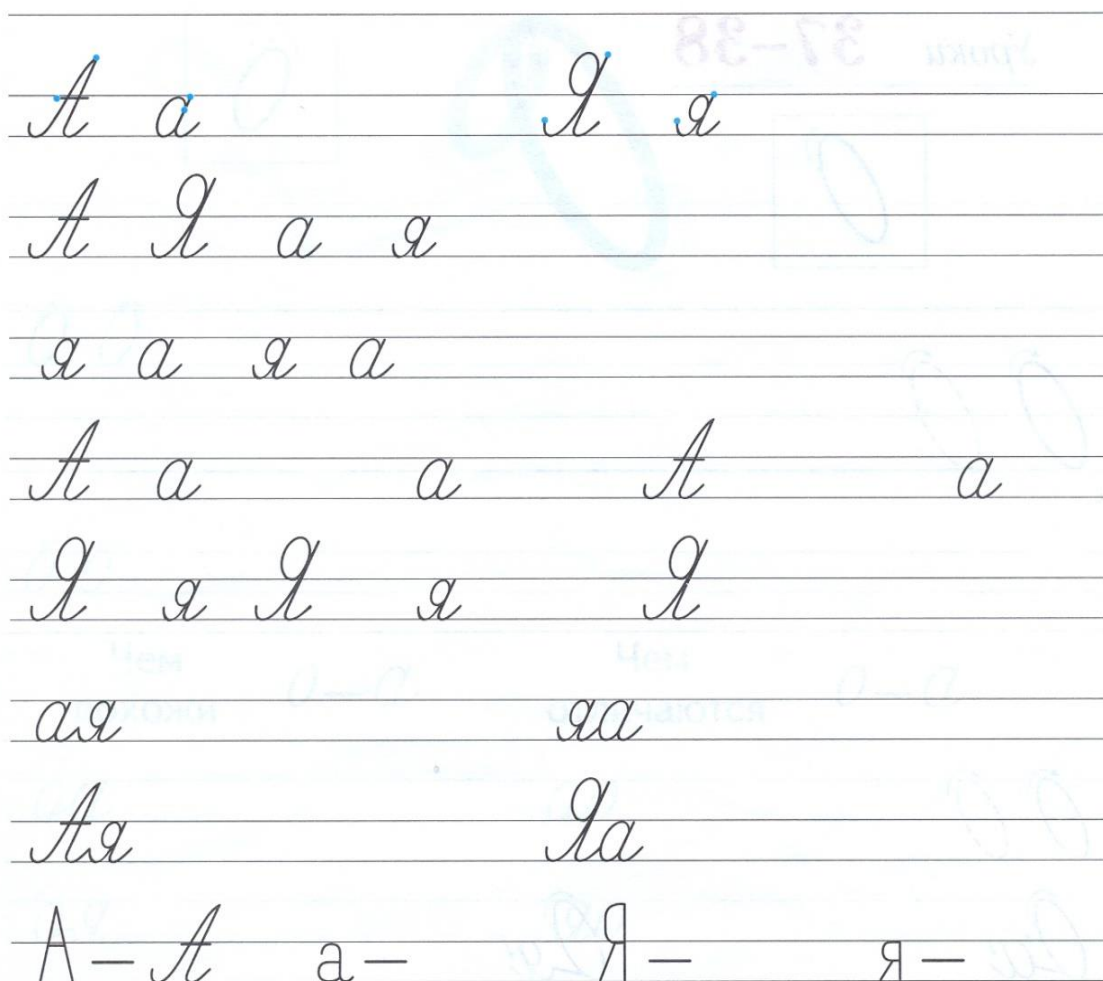 А а Я я
А Я а я
я а я а
А а а А а
Я я Я я Я
ая яа
Ая Яа
А – А а – Я – я –